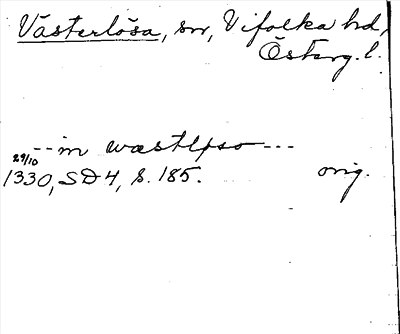 Västerlösa, sn, Vifolka hd,
Österg. l.
--- in wæstløso ---
29/10
1330, SD 4, s. 185. orig.